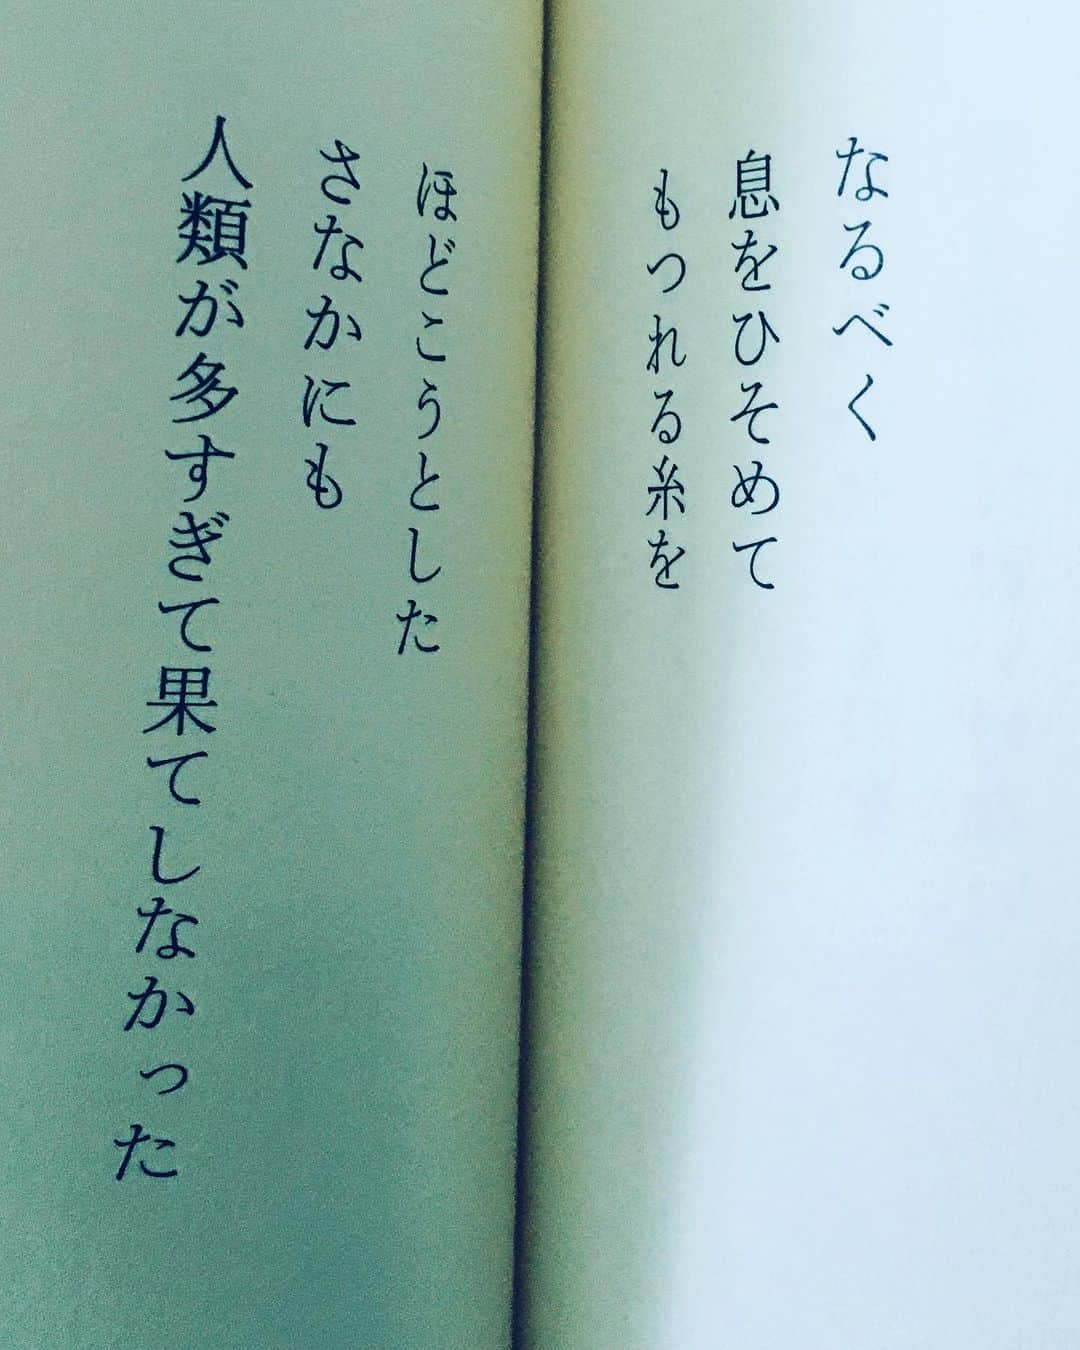 なるべく
息をひそめて
もつれる糸を
ほどこうとした
さなかにも
人類が多すぎて果てしなかった